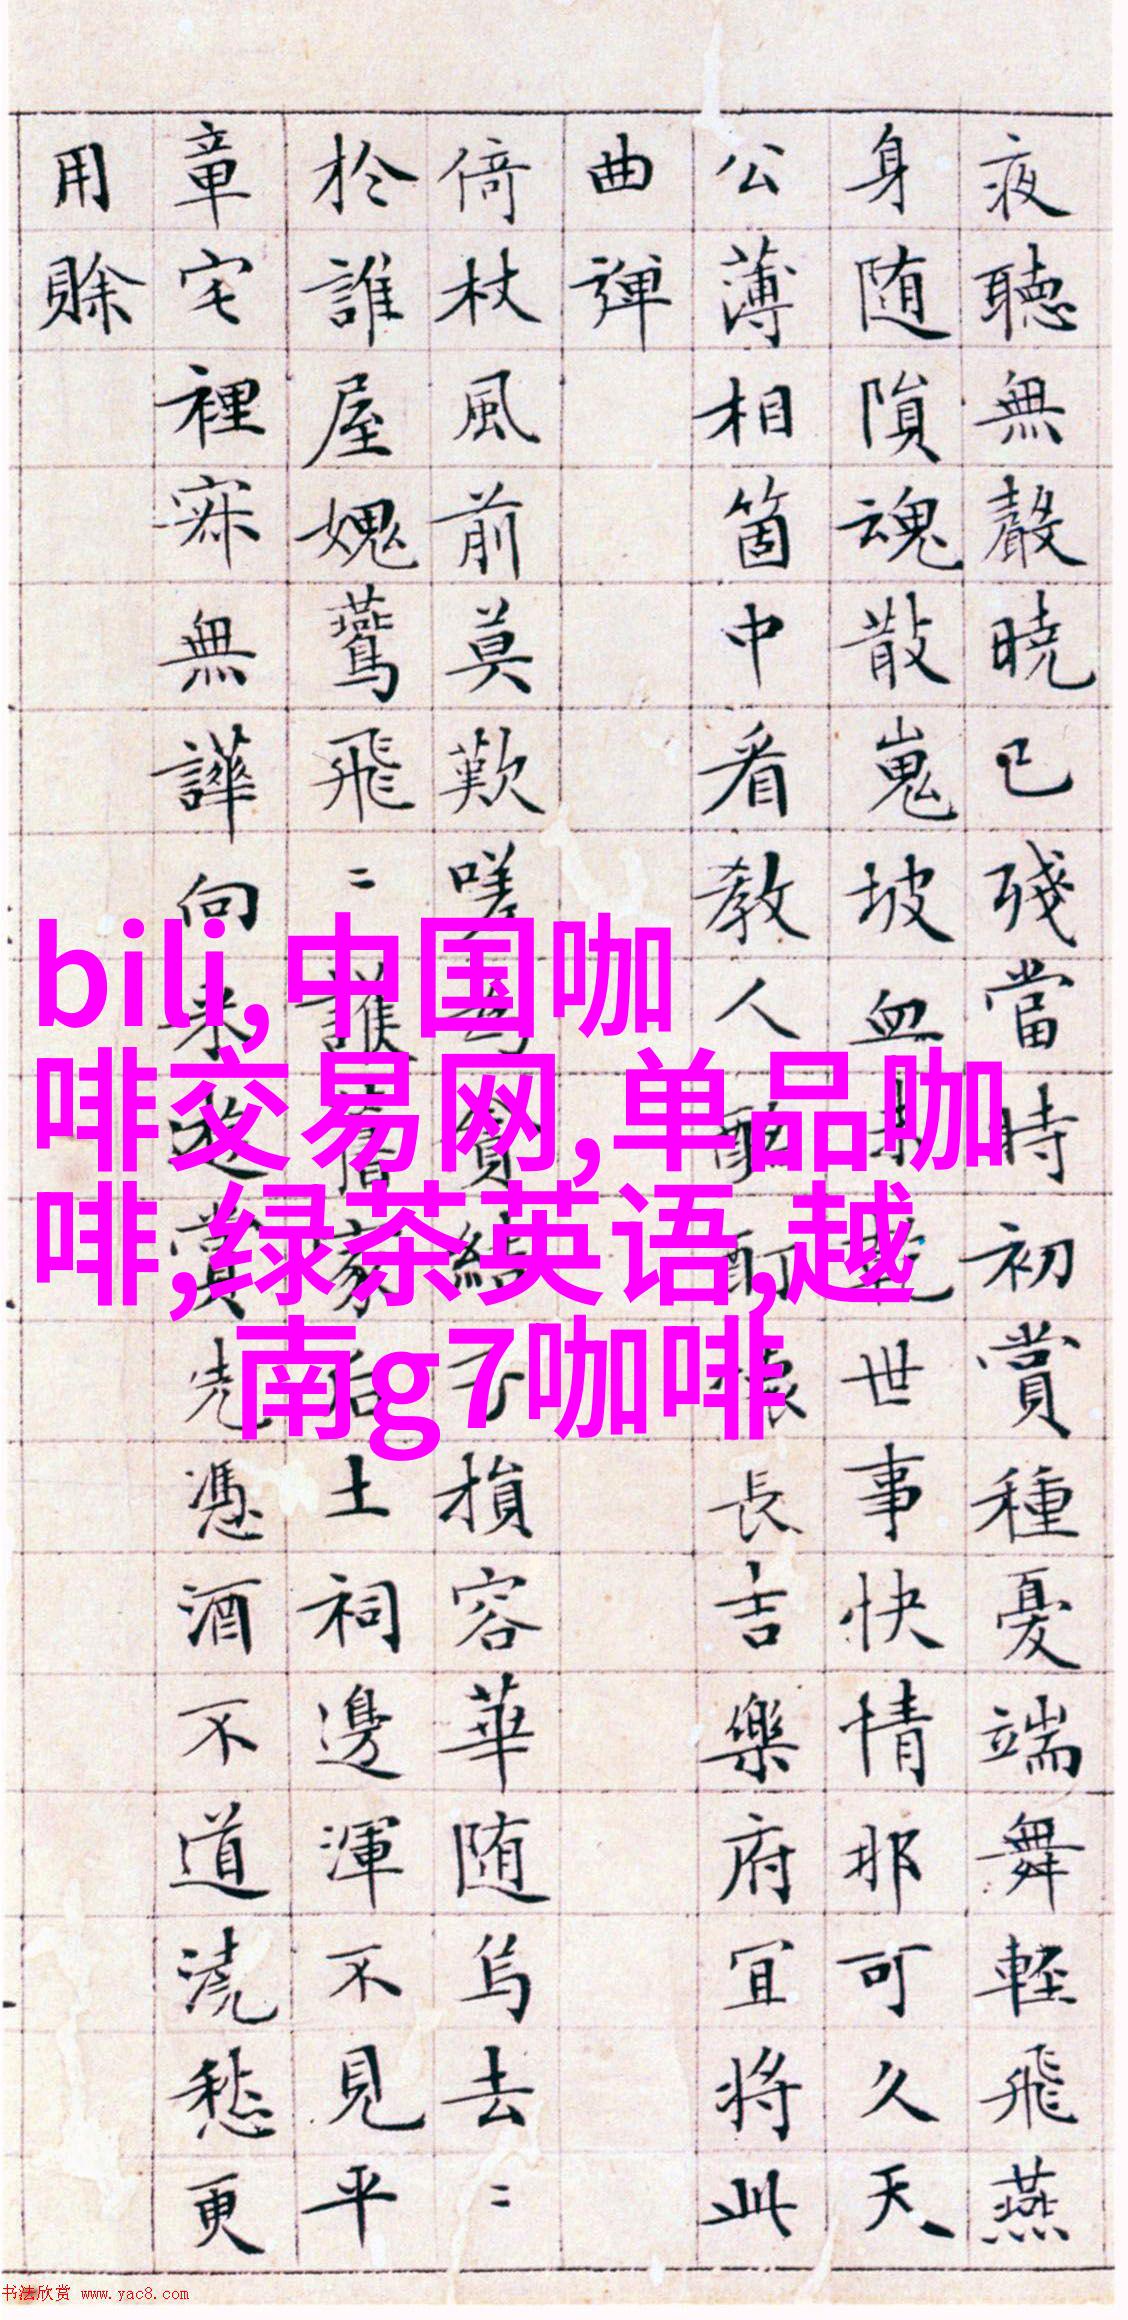 夜聽無聲曉已殘當時初賞種憂端舞輕飛燕
身随隕魂散嵬坡血世事快情那可久天
公薄相箇中看教人酩酊懷長吉樂府宜將此
曲彈
倚杖風前莫歎嗟貧結損容華随烏去〻
於誰屋媿鶱飛〻護舊家后土祠邊渾不見平
章宅裡寂無譁向来遊賞先憑酒不道澆愁更
用賒
bili,中国咖
啡交易网,单品咖
啡,绿茶英语,越
南g7咖啡
书法欣赏 www.yac8.com